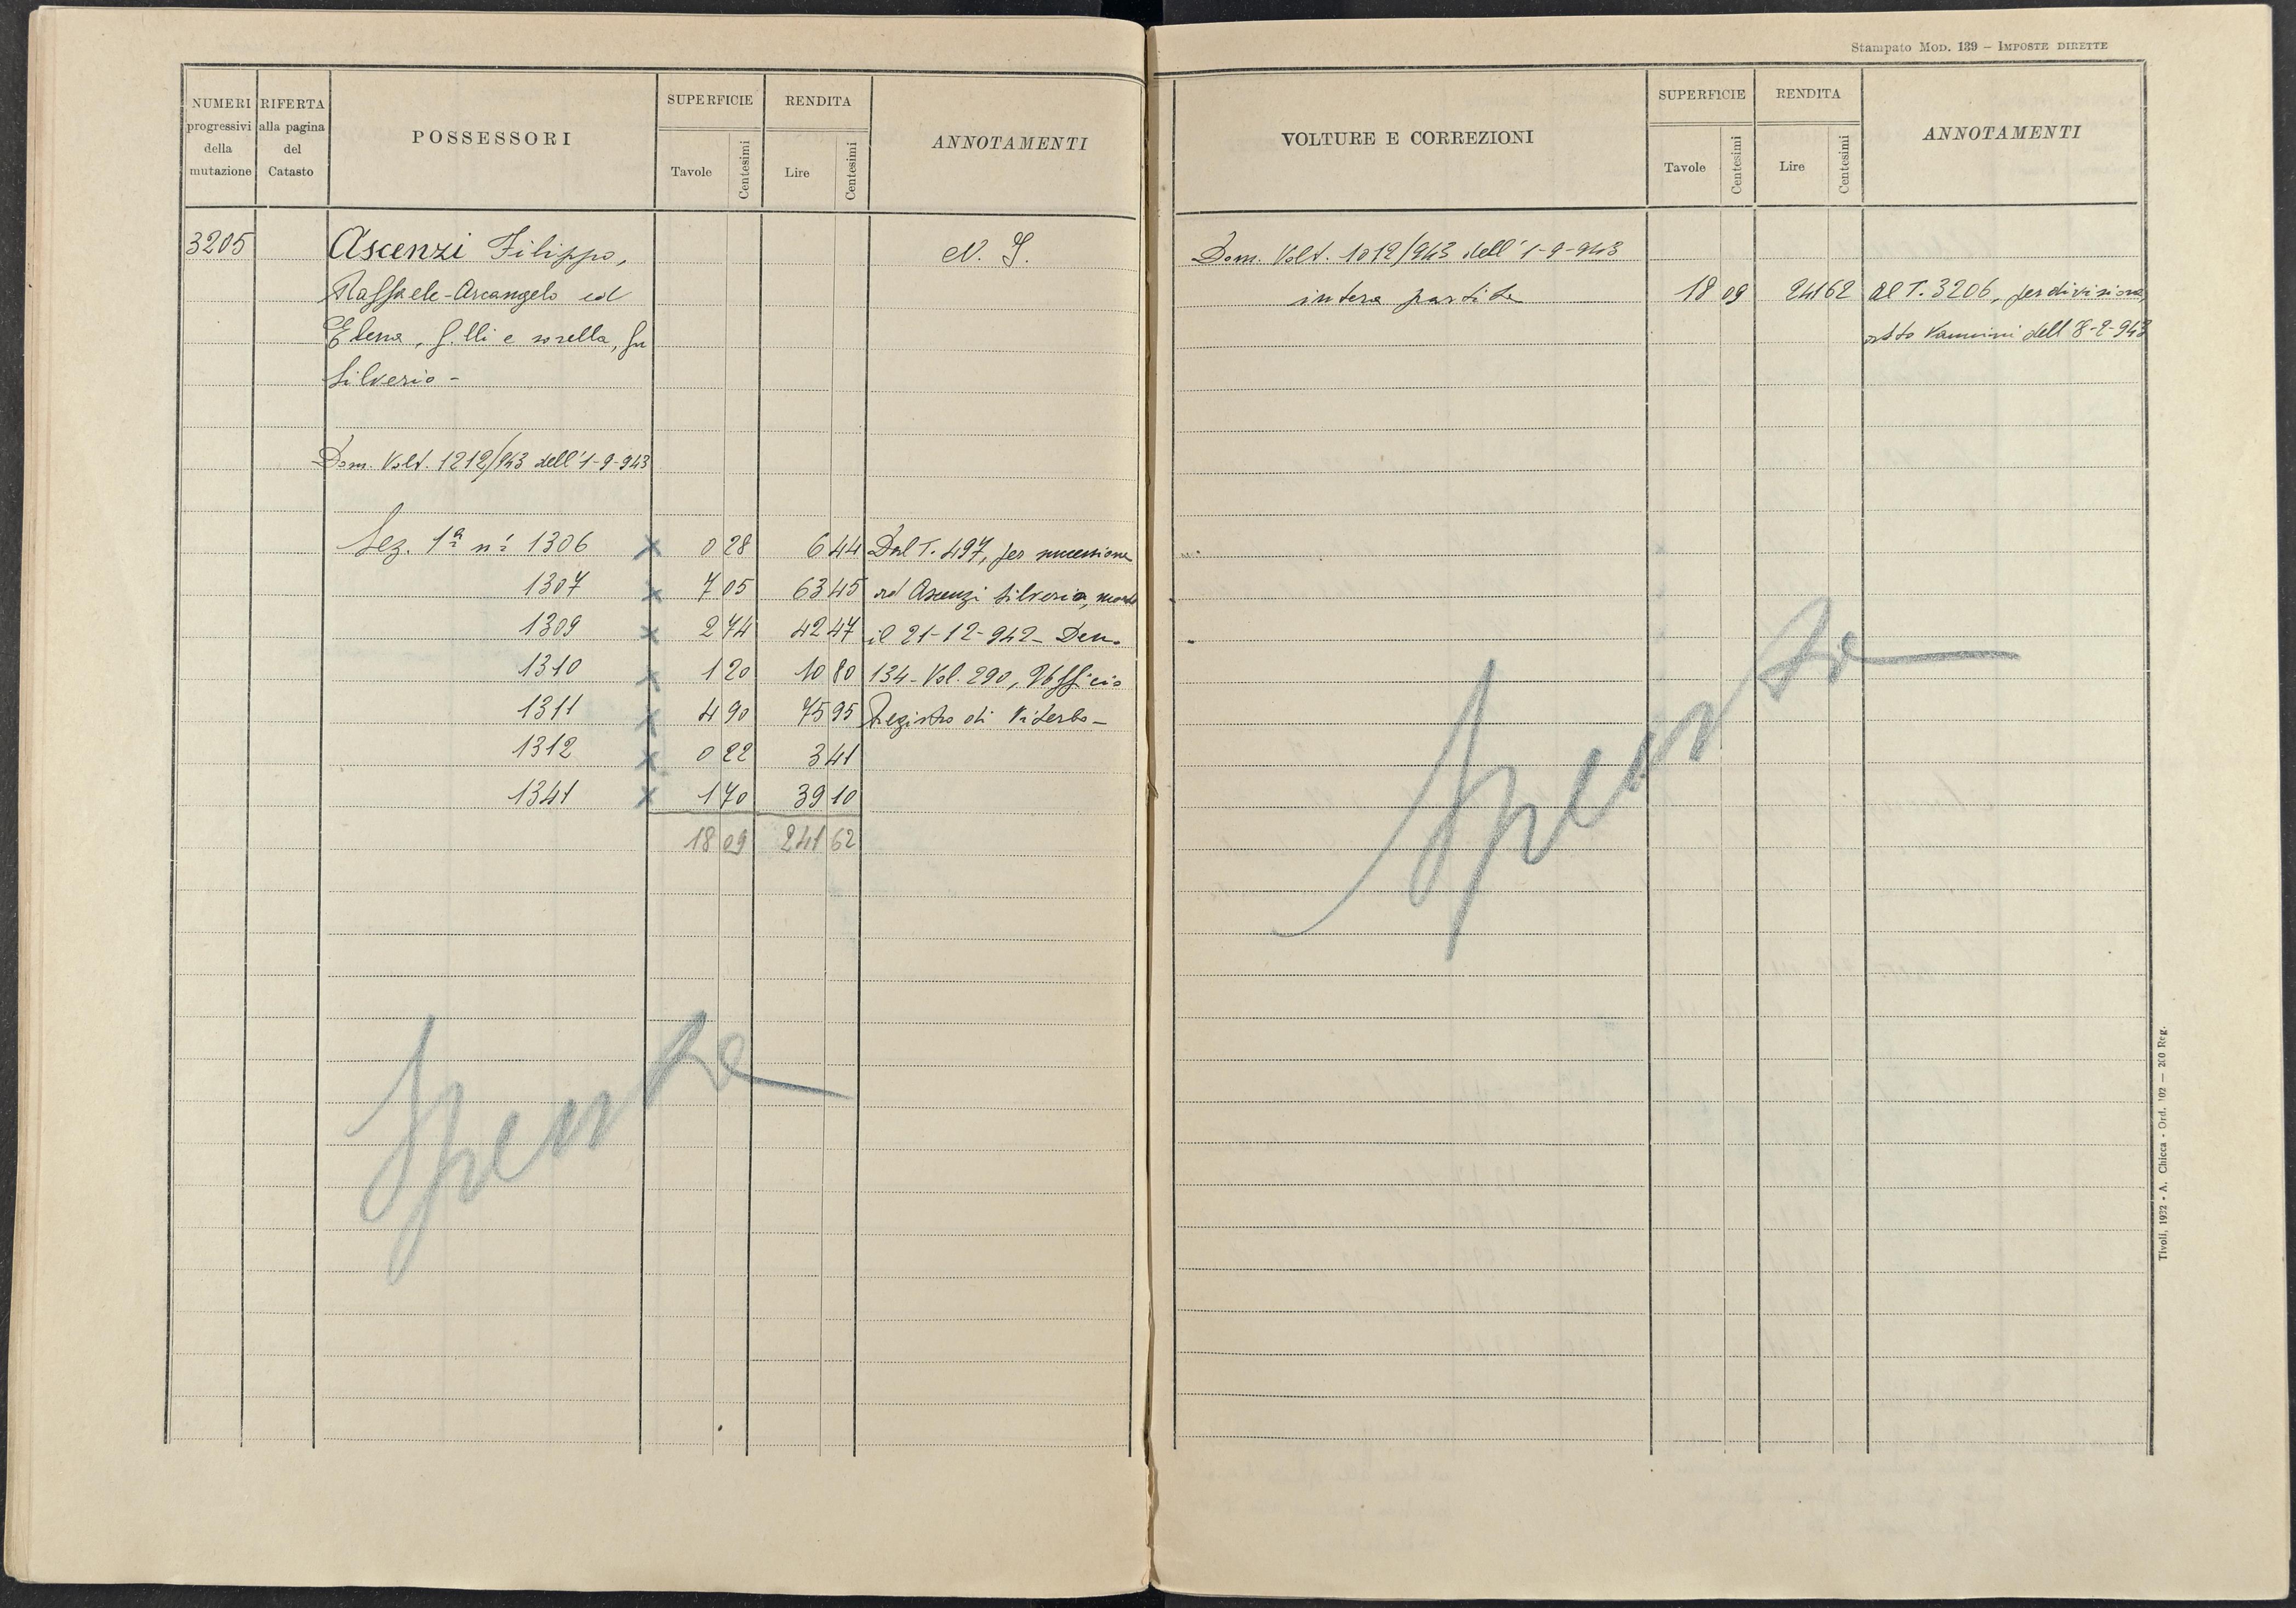 Stampato Mod. 139 – Imposte dirette
NUMERI progressivi della mutazione
RIFERTA alla pagina del Catasto
POSSESSORI
SUPERFICIE
Tavole
Centesimi
RENDITA
Lire
Centesimi
ANNOTAMENTI
3205 Ascenzi Filippo, N. I.
Raffaele-Arcangelo ed
Elena, f.lli e sorella, fu
Silverio -
Dom. Volt. 1212/943 dell'1-9-943
Sez. 1ª nº 1306 x 0 28 6 44 Dal T. 497, per successione
1307 x 7 05 63 45 ad Ascenzi Silverio, morto
1309 x 2 74 42 47 il 21-12-942- Den.
1310 x 1 20 10 80 134- Vol. 290, Ufficio
1311 x 4 90 75 95 Registro di Viterbo -
1312 x 0 22 3 41
1341 x 1 70 39 10
18 09 241 62
Spenta
VOLTURE E CORREZIONI
SUPERFICIE
Tavole
Centesimi
RENDITA
Lire
Centesimi
ANNOTAMENTI
Dom. Volt. 1012/943 dell'1-9-943
intera partita 18 09 241 62 Al T. 3206, per divisione,
atto Vannini dell'8-2-943
Spenta
Tivoli, 1932 - A. Chicca - Ord. 102 — 200 Reg.